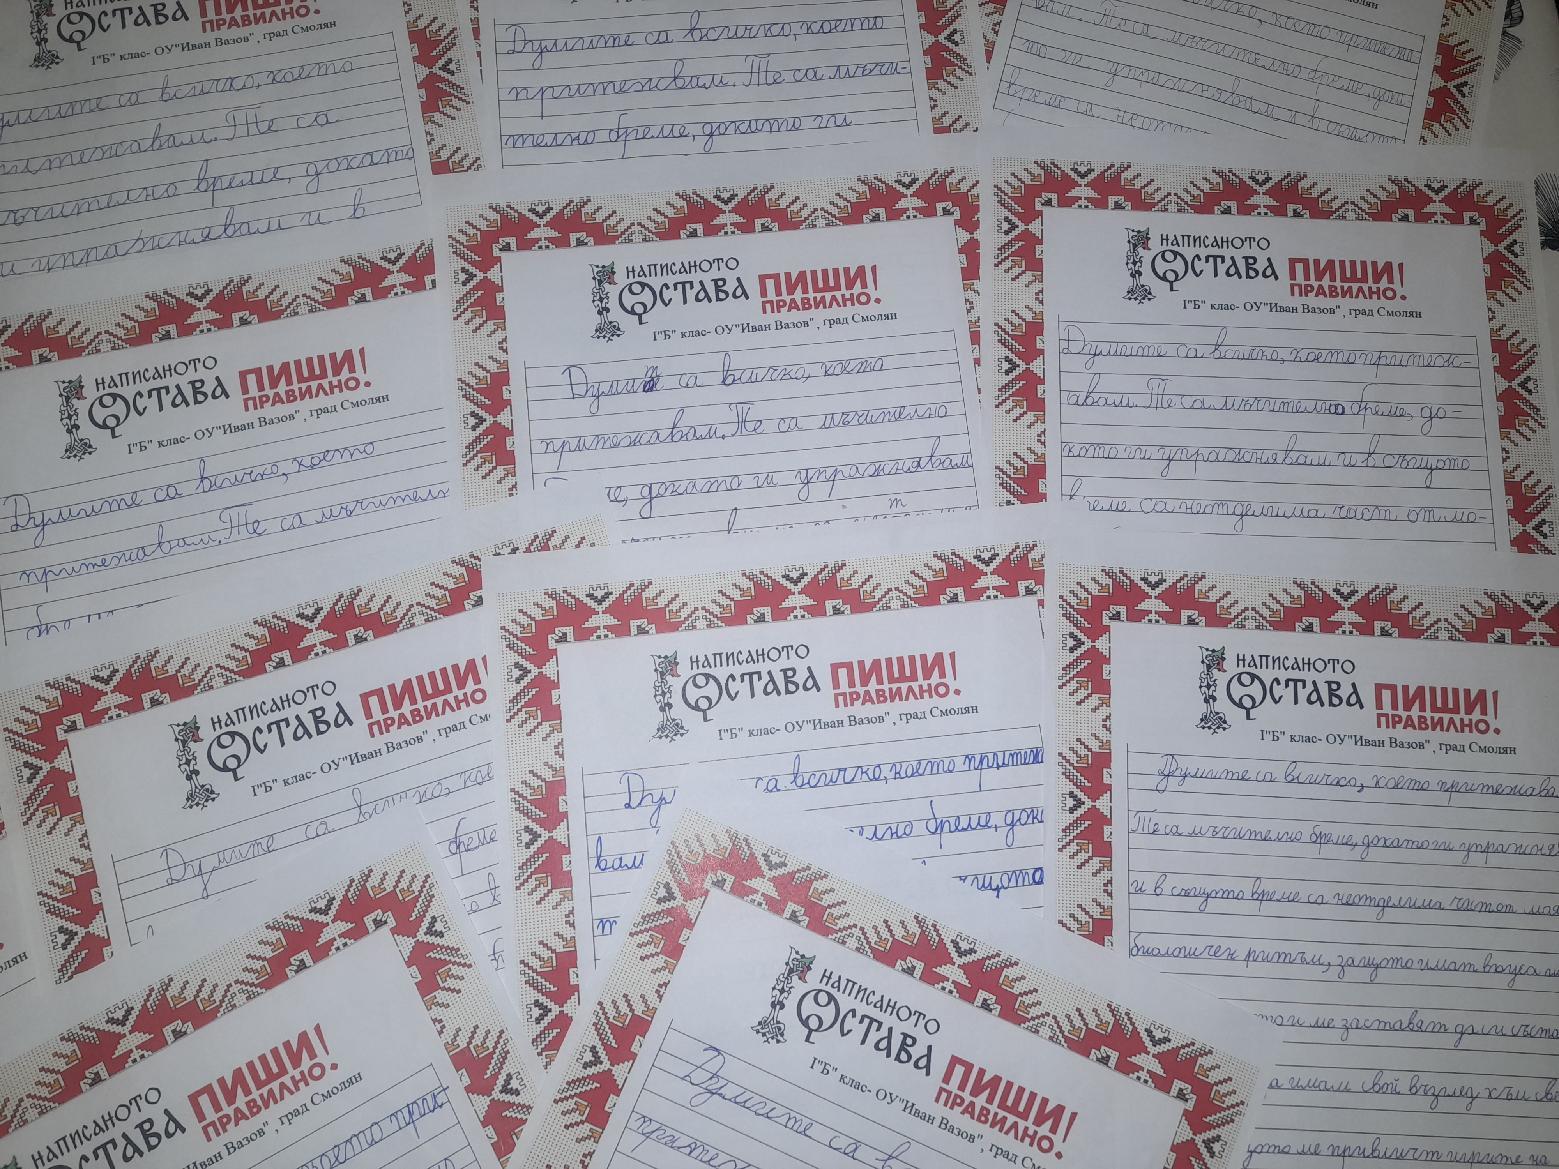 ОСТАВА ПИШИ
ПРАВИЛНО.
I"Б" клас- ОУ"Иван Вазов", град Смолян
са всичко, което
притежавам. Те са
мъчително бреме, докато
упражнявам и в
Думите са всичко, което
притежавам. Те са мъчи-
телно бреме, докато ги
Те са мъчително бреме,
упражнявам и в същото
време са
НАПИСАНОТО
ОСТАВА ПИШИ!
ПРАВИЛНО.
I"Б" клас- ОУ"Иван Вазов", град Смолян
Думите са всичко, което
притежавам. Те са мъчителн
НАПИСАНОТО
ОСТАВА ПИШИ!
ПРАВИЛНО.
I"Б" клас- ОУ"Иван Вазов", град Смолян
Думите са всичко, което
притежавам. Те са мъчително
докато ги упражнявам
НАПИСАНОТО
ОСТАВА ПИШИ!
ПРАВИЛНО.
I"Б" клас- ОУ"Иван Вазов", град Смолян
Думите са всичко, което притеж-
авам. Те са мъчително бреме, до-
като ги упражнявам и в същото
са неотделима част от мо-
НАПИСАНОТО
ОСТАВА ПИШИ
ПРАВИЛНО
I"Б" клас- ОУ"Иван Вазов", град См
Думите са всичко,
НАПИСАНОТО
ОСТАВА ПИШИ!
ПРАВИЛНО.
I"Б" клас- ОУ"Иван Вазов", град Смолян
са всичко, което притеж
вам
бреме, док
НАПИСАНОТО
ОСТАВА ПИШИ!
ПРАВИЛНО.
I"Б" клас- ОУ"Иван Вазов", град Смолян
Думите са всичко, което притежава
Те са мъчително бреме, докато ги упражня
и в същото време са неотделима част от моя
биологичен ритъм, защото имат вкуса
ме заставят да ги
имам свой възглед към
ме привличат игрите на
НАПИСАНОТО
ОСТАВА ПИШИ!
ПРАВИЛНО.
"Иван Вазов", град Смолян
което при
НАПИСАНОТО
ОСТАВА ПИШИ!
ПРАВИЛНО.
I"Б" клас- ОУ"Иван Вазов", град Смолян
Думите са в